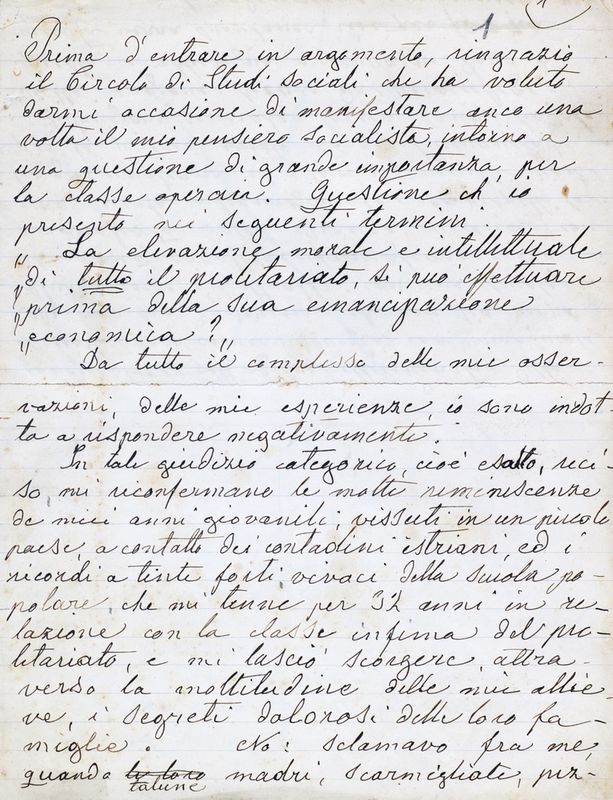 1
Prima d'entrare in argomento, ringrazio
il Circolo di Studi sociali che ha voluto
darmi occasione di manifestare anco una
volta il mio pensiero socialista, intorno a
una questione di grande importanza per
la classe operaia. Questione ch' io
presento nei seguenti termini:
„ La elevazione morale e intellettuale
„ di tutto il proletariato, si può effettuare
„ prima della sua emancipazione
„ economica? „
Da tutto il complesso delle mie osser-
vazioni, delle mie esperienze, io sono indot
ta a rispondere negativamente.
In tale giudizio categorico, cioè esatto, reci-
so, mi riconfermano le molte reminiscenze
de' miei anni giovanili, vissuti in un piccolo
paese, a contatto dei contadini istriani, ed i
ricordi a tinte forti vivaci della scuola po-
polare che mi tenne per 32 anni in re-
lazione con la classe infima del pro-
letariato, e mi lasciò scorgere, attra-
verso la moltitudine delle mie allie-
ve, i segreti dolorosi delle loro fa-
miglie. No! sclamavo fra me,
quando le loro talune madri, scarmigliate, piz-